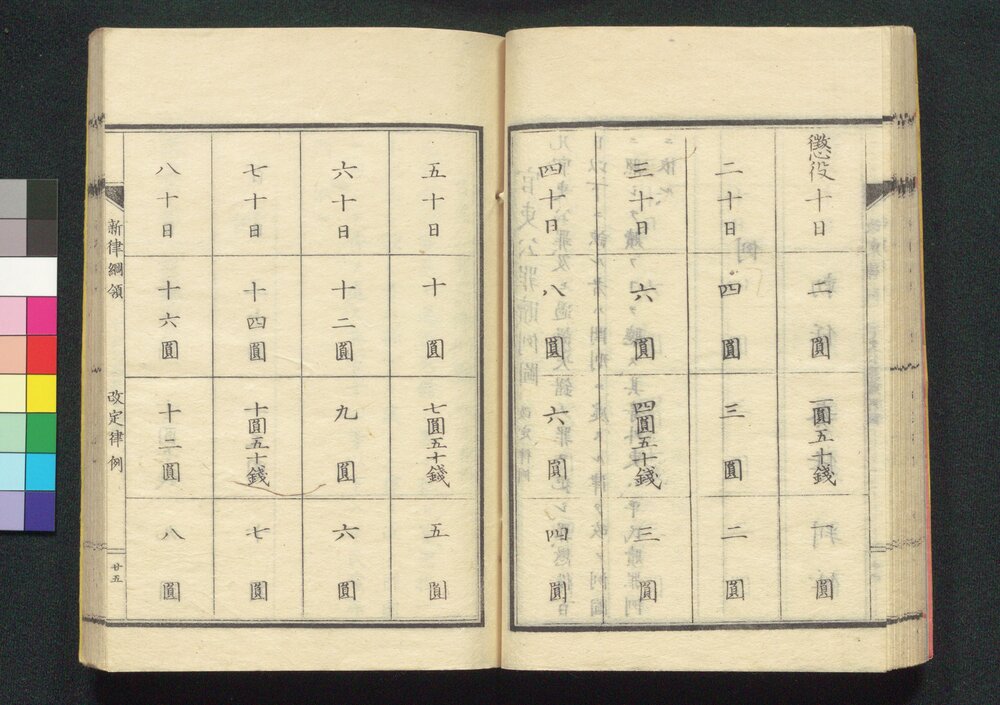 懲役十日
二圓
一圓五十錢
一圓
二十日
四圓
三圓
二圓
三十日
六圓
四圓五十錢
三圓
四十日
八圓
六圓
四圓
五十日
十圓
七圓五十錢
五圓
六十日
十二圓
九圓
六圓
七十日
十四圓
十圓五十錢
七圓
八十日
十六圓
十二圓
八圓
新律綱領 改定律例 廿五